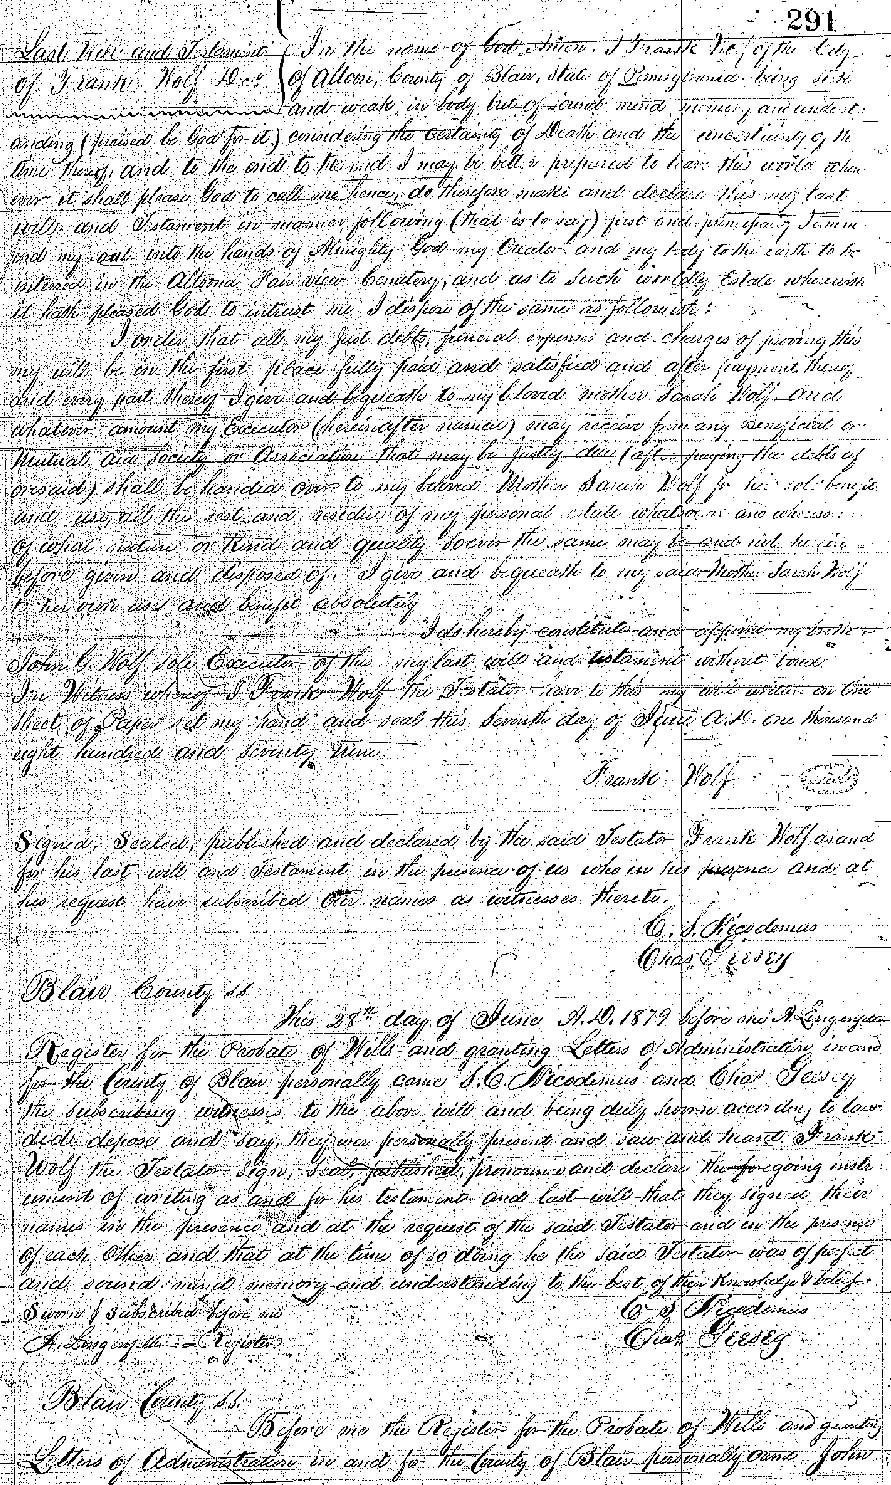 291
Last Will and Testament
of Frank Wolf Decd
In the name of God, Amen. I Frank Wolf of the City
of Altoona, County of Blair, State of Pennsylvania being sick
and weak in body but of sound mind, memory and underst-
anding (praised be God for it) considering the certainty of Death and the uncertainty of the
time thereof, and to the end to the end I may be better prepared to leave this world when
ever it shall please God to call me hence, do therefore make and declare this my last
will and Testament in manner following (that is to say) first and principaly I com
end my soul into the hands of Almighty God my Creator and my body to the earth to be
interred in the Altoona Fairview Cemetery, and as to such worldly Estate wherewith
it hath pleased God to intrust me I dispose of the same as followeth:
I order that all my just debts, funeral expenses and charges of proving this
my will be in the first place fully paid and satisfied and after payment thereof
and every part thereof I give and bequeath to my beloved mother Sarah Wolf and
whatever amount my Executor (hereinafter named) may receive from any Beneficial or
Mutual aid Society or Association that may be justly due (after paying the debts af
oresaid) shall be handed over to my beloved Mother Sarah Wolf for her sole benefit
and use, all the rest and residue of my personal estate
of what nature or Kind and quality soever the same may be and not he in
before given and disposed of. I give and bequeath to my said Mother Sarah Wolf
to her own use and benefit absolutely
I do hereby constitute and appoint my brother
John G. Wolf sole Executor of this my last will and testament without bond.
In Witness whereof I Frank Wolf the Testator have to this my will written on one
sheet of Paper set my hand and seal this Seventh day of June A.D. one thousand
eight hundred and seventy nine
Frank Wolf
Seal
Signed, Sealed, published and declared by the said Testator Frank Wolf as and
for his last will and Testament in the presence of us who in his presence and at
his request have subscribed our names as witnesses thereto.
C. S. Nicodemus
Chas. Geesey
Blair County ss
This 28th day of June A.D. 1879 before me A. Lingenfelter
Register for the Probate of Wills and granting Letters of Administration in and
for the County of Blair personally came S. C. Nicodemus and Chas Geesey
the subscribing witnesses to the above will and being duly sworn according to law
did depose and say, they were personally present and saw and heard Frank
Wolf the Testator sign, seal, published, pronounce and declare the foregoing instr
ument of writing as and for his testament and last will that they signed their
names in the presence and at the request of the said Testator and in the presence
of each other and that at the time of so doing he the said Testator was of perfect
and sound mind memory and understanding to the best of their Knowledge & belief.
Sworn & subscribed before me
C S Nicodemus
A. Lingenfelter Register
Chas. Geesey
Blair County ss.
Before me the Register for the Probate of Wills and granting
Letters of Administration in and for the County of Blair personally came John